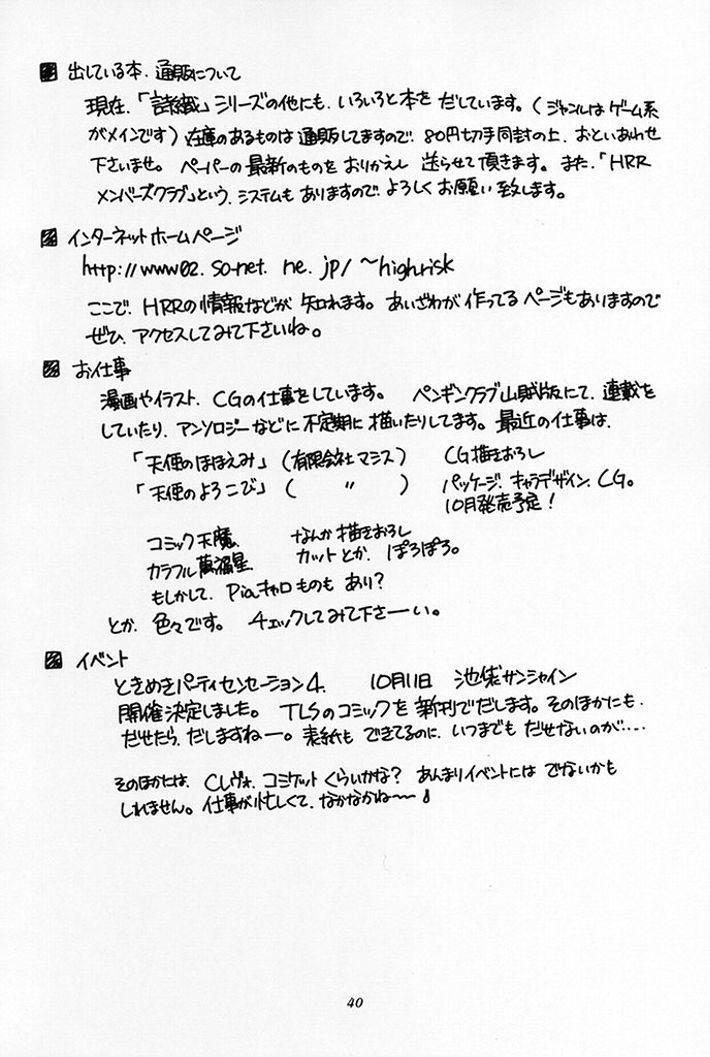 出している本、通販について
現在、「詩織」シリーズの他にも、いろいろと本を だしています。(ジャンルは ゲーム系
がメインです) 在庫のあるものは 通販してますので、80円切手同封の上、おといあわせ
下さいませ。 ペーパーの 最新のものを おりかえし 送らせて頂きます。 また、「HRR
メンバーズクラブ」という、システムも ありますので、よろしく お願い致します。
インターネットホームページ
http://www02.so-net.ne.jp/~highrisk
ここで、HRRの情報などが 知れます。 あいざわが 作ってる ページもありますので
ぜひ、アクセスしてみて下さいね。
お仕事
漫画やイラスト、CGの仕事をしています。 ペンギンクラブ山賊版にて、連載を
していたり、アンソロジーなどに 不定期に 描いたりしてます。 最近の仕事は、
「天使のほほえみ」 (有限会社マシス) CG描きおろし
「天使のよろこび」 ( 〃 ) パッケージ、キャラデザイン、CG。
10月発売予定!
コミック天魔、 なんか描きおろし
カラフル萬福星、 カットとか、ぽろぽろ。
もしかして、Piaキャロものも あり?
とか、色々です。 チェックしてみて下さーい。
イベント
ときめきパーティセンセーション4、 10月11日 池袋サンシャイン
開催決定しました。 TLSのコミックを 新刊でだします。そのほかにも、
だせたら、だしますねー。表紙も できてるのに、いつまでも だせないのが‥‥
そのほかには、Cレヴォ、コミケット くらいかな? あんまりイベントには でないかも
しれません。仕事が忙しくて、なかなかね〜〜♪
40